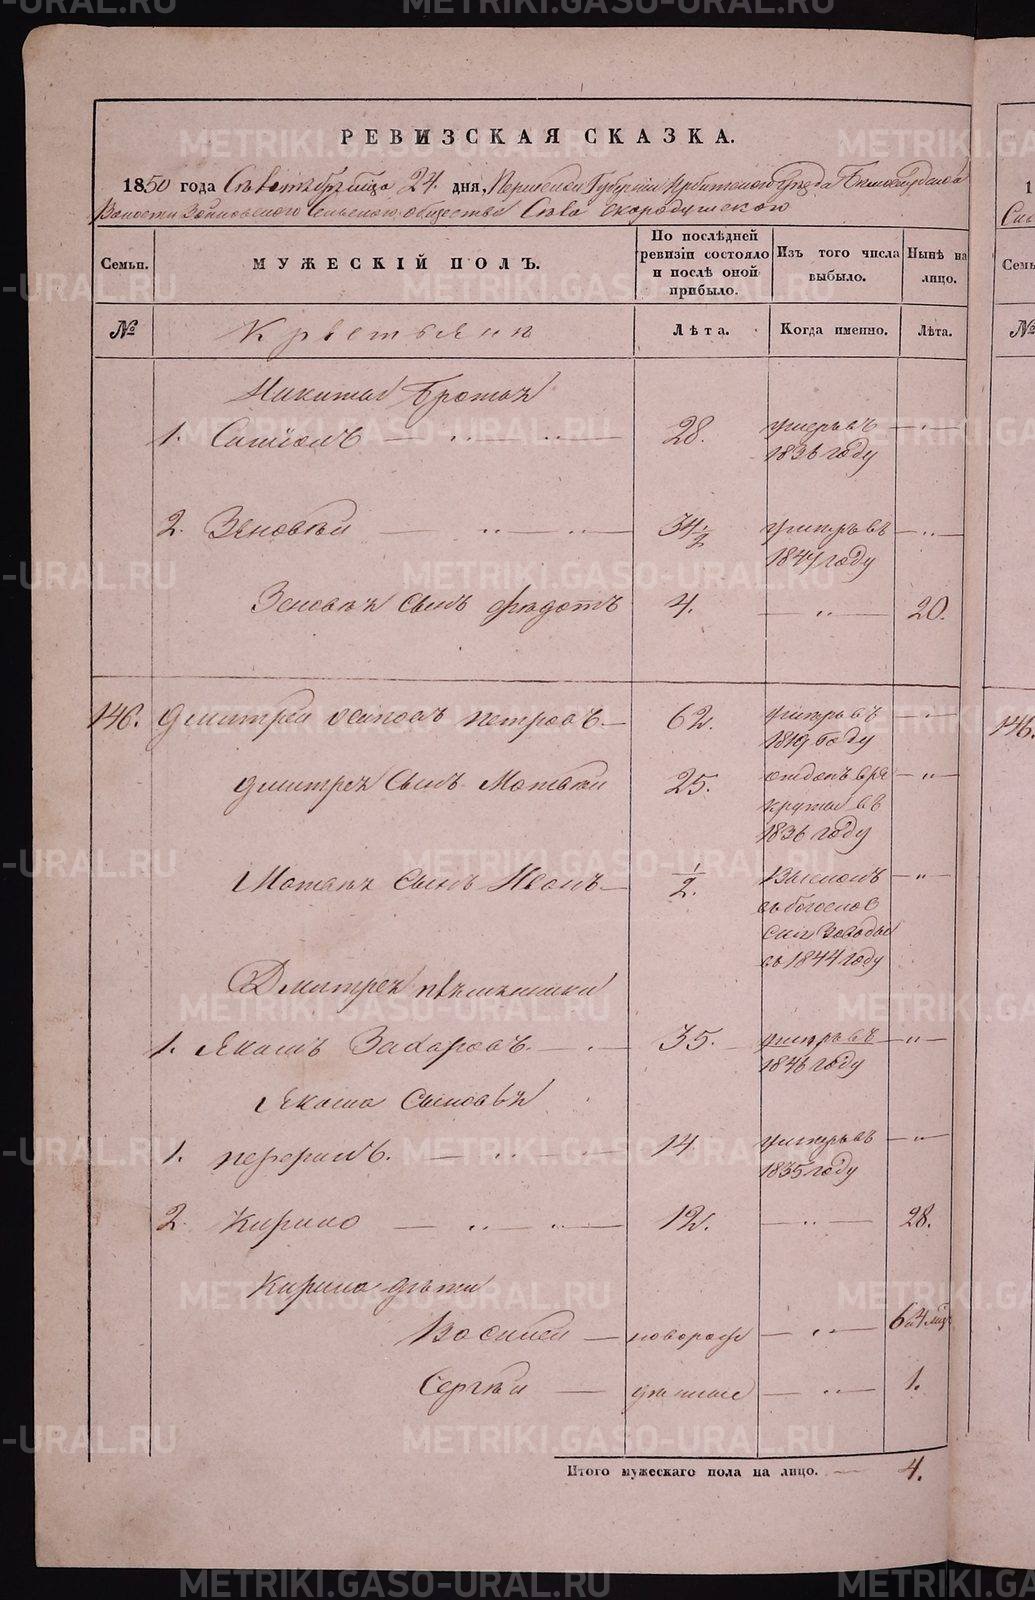 METRIKI.GASO-URAL.RU
РЕВИЗСКАЯ СКАЗКА.
1850 года Сентября мѣсяца 24. дня, Пермской Губернiи Ирбитского уѣзда Белослудской
Волости Зайковского Сельского общества Села Скородумского
Семьи. МУЖЕСКIЙ ПОЛЪ. По послѣдней ревизiи состояло и послѣ оной прибыло. Изъ того числа выбыло. Нынѣ на лицо.
№ Крестьяне Лѣта. Когда именно. Лѣта.
Никиты братья
1. Самсонъ — „ — „ — 28. умеръ въ 1836 году — „ —
2. Зеновѣй — „ — „ — 34 1/2 умеръ въ 1847 году — „ —
Зеновья сынъ Федотъ 4. — „ — 20.
146. Дмитрей Осиповъ Петровъ — 62. умеръ въ 1849 году — „ —
Дмитрея сынъ Матвѣй 25. отданъ в рекруты въ 1836 году — „ —
Матвея сынъ Иванъ — 1/2. въ 1844 году — „ —
Дмитрея племянники
1. Якимъ Захаровъ. — . — 35. умеръ въ 1846 году — „ —
Якима сыновья
1. — „ — 14 умеръ въ 1835 году — „ —
2. Кирило — „ — „ — 12. — „ — 28.
Кирила дѣти
Василей — новорож — „ — 6 и 4 мѣс
Сергѣй — денные — „ — 1.
Итого мужескаго пола на лицо. — 4.